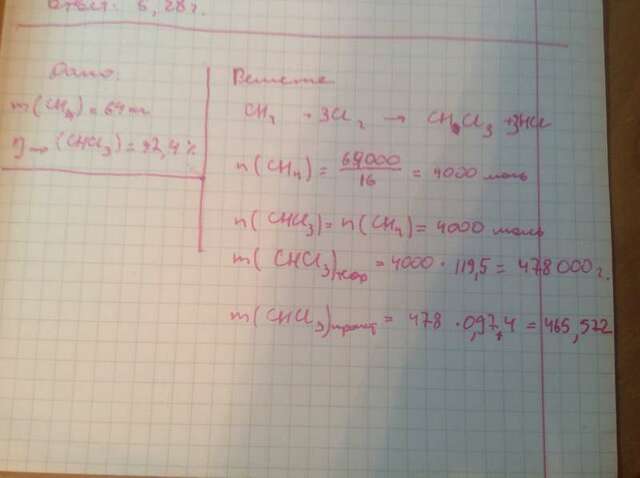 Ответ: 6,28 г.
Дано:
m(CH4) = 64 кг
η (CHCl3) = 97,4 %
Решение
CH4 + 3Cl2 → CHCl3 + 3HCl
n(CH4) = 64000/16 = 4000 моль
n(CHCl3) = n(CH4) = 4000 моль
m(CHCl3)теор = 4000 · 119,5 = 478000 г.
m(CHCl3)практ = 478 · 0,974 = 465,572